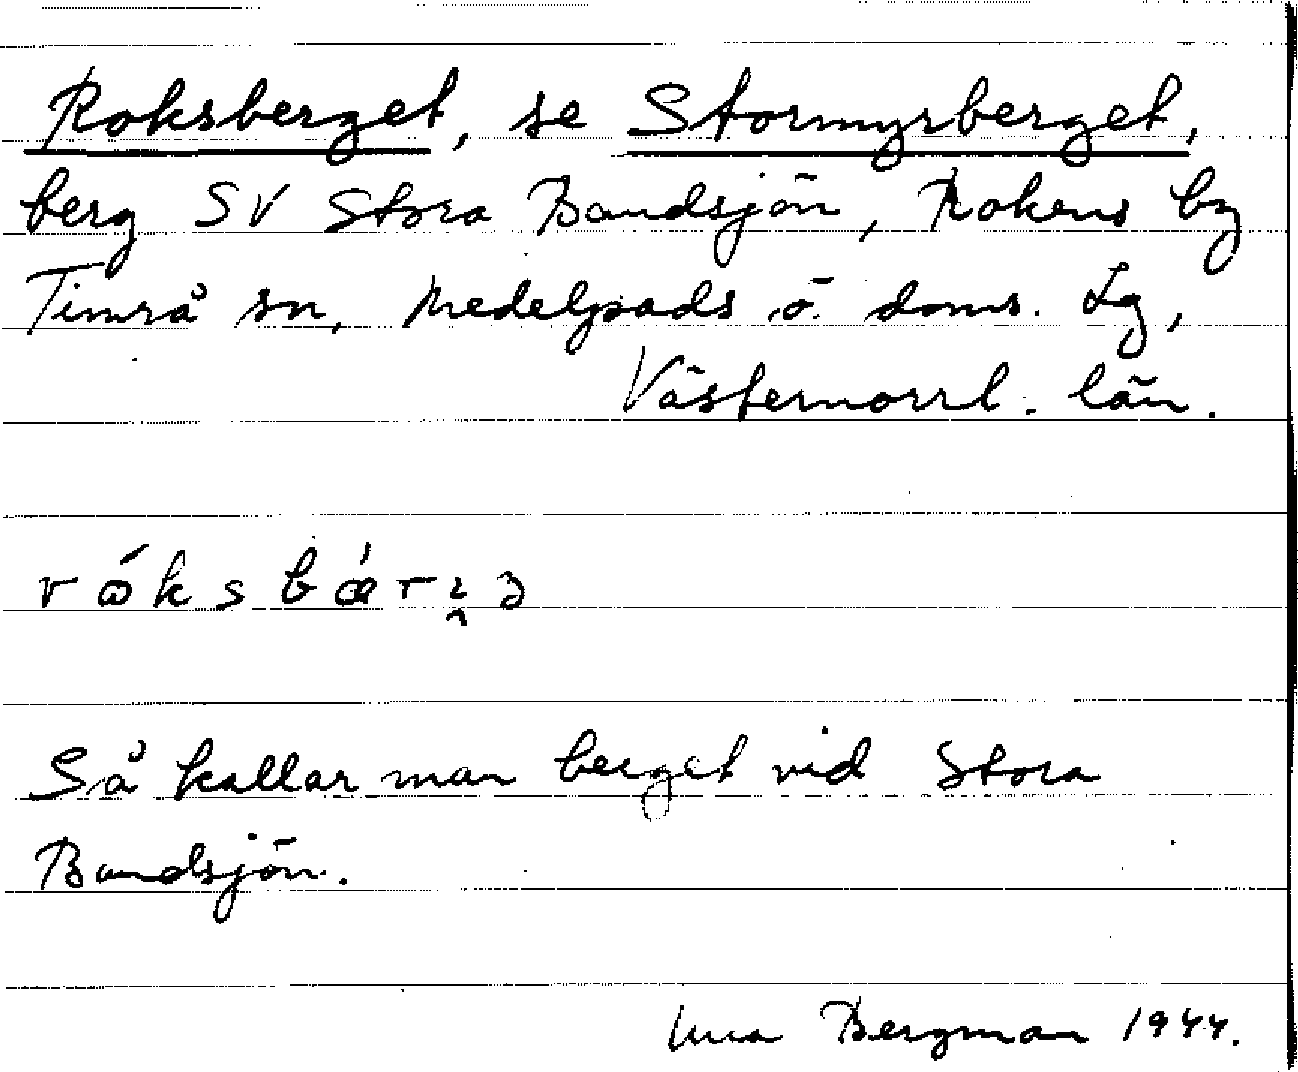 Roksberget, se Stormyrberget,
berg SV Stora Bandsjön, Rokens by
Timrå sn, Medelpads ö. doms. Lg,
Västernorrl. län.
Så kallar man berget vid Stora
Bandsjön.
Bergman 1944.